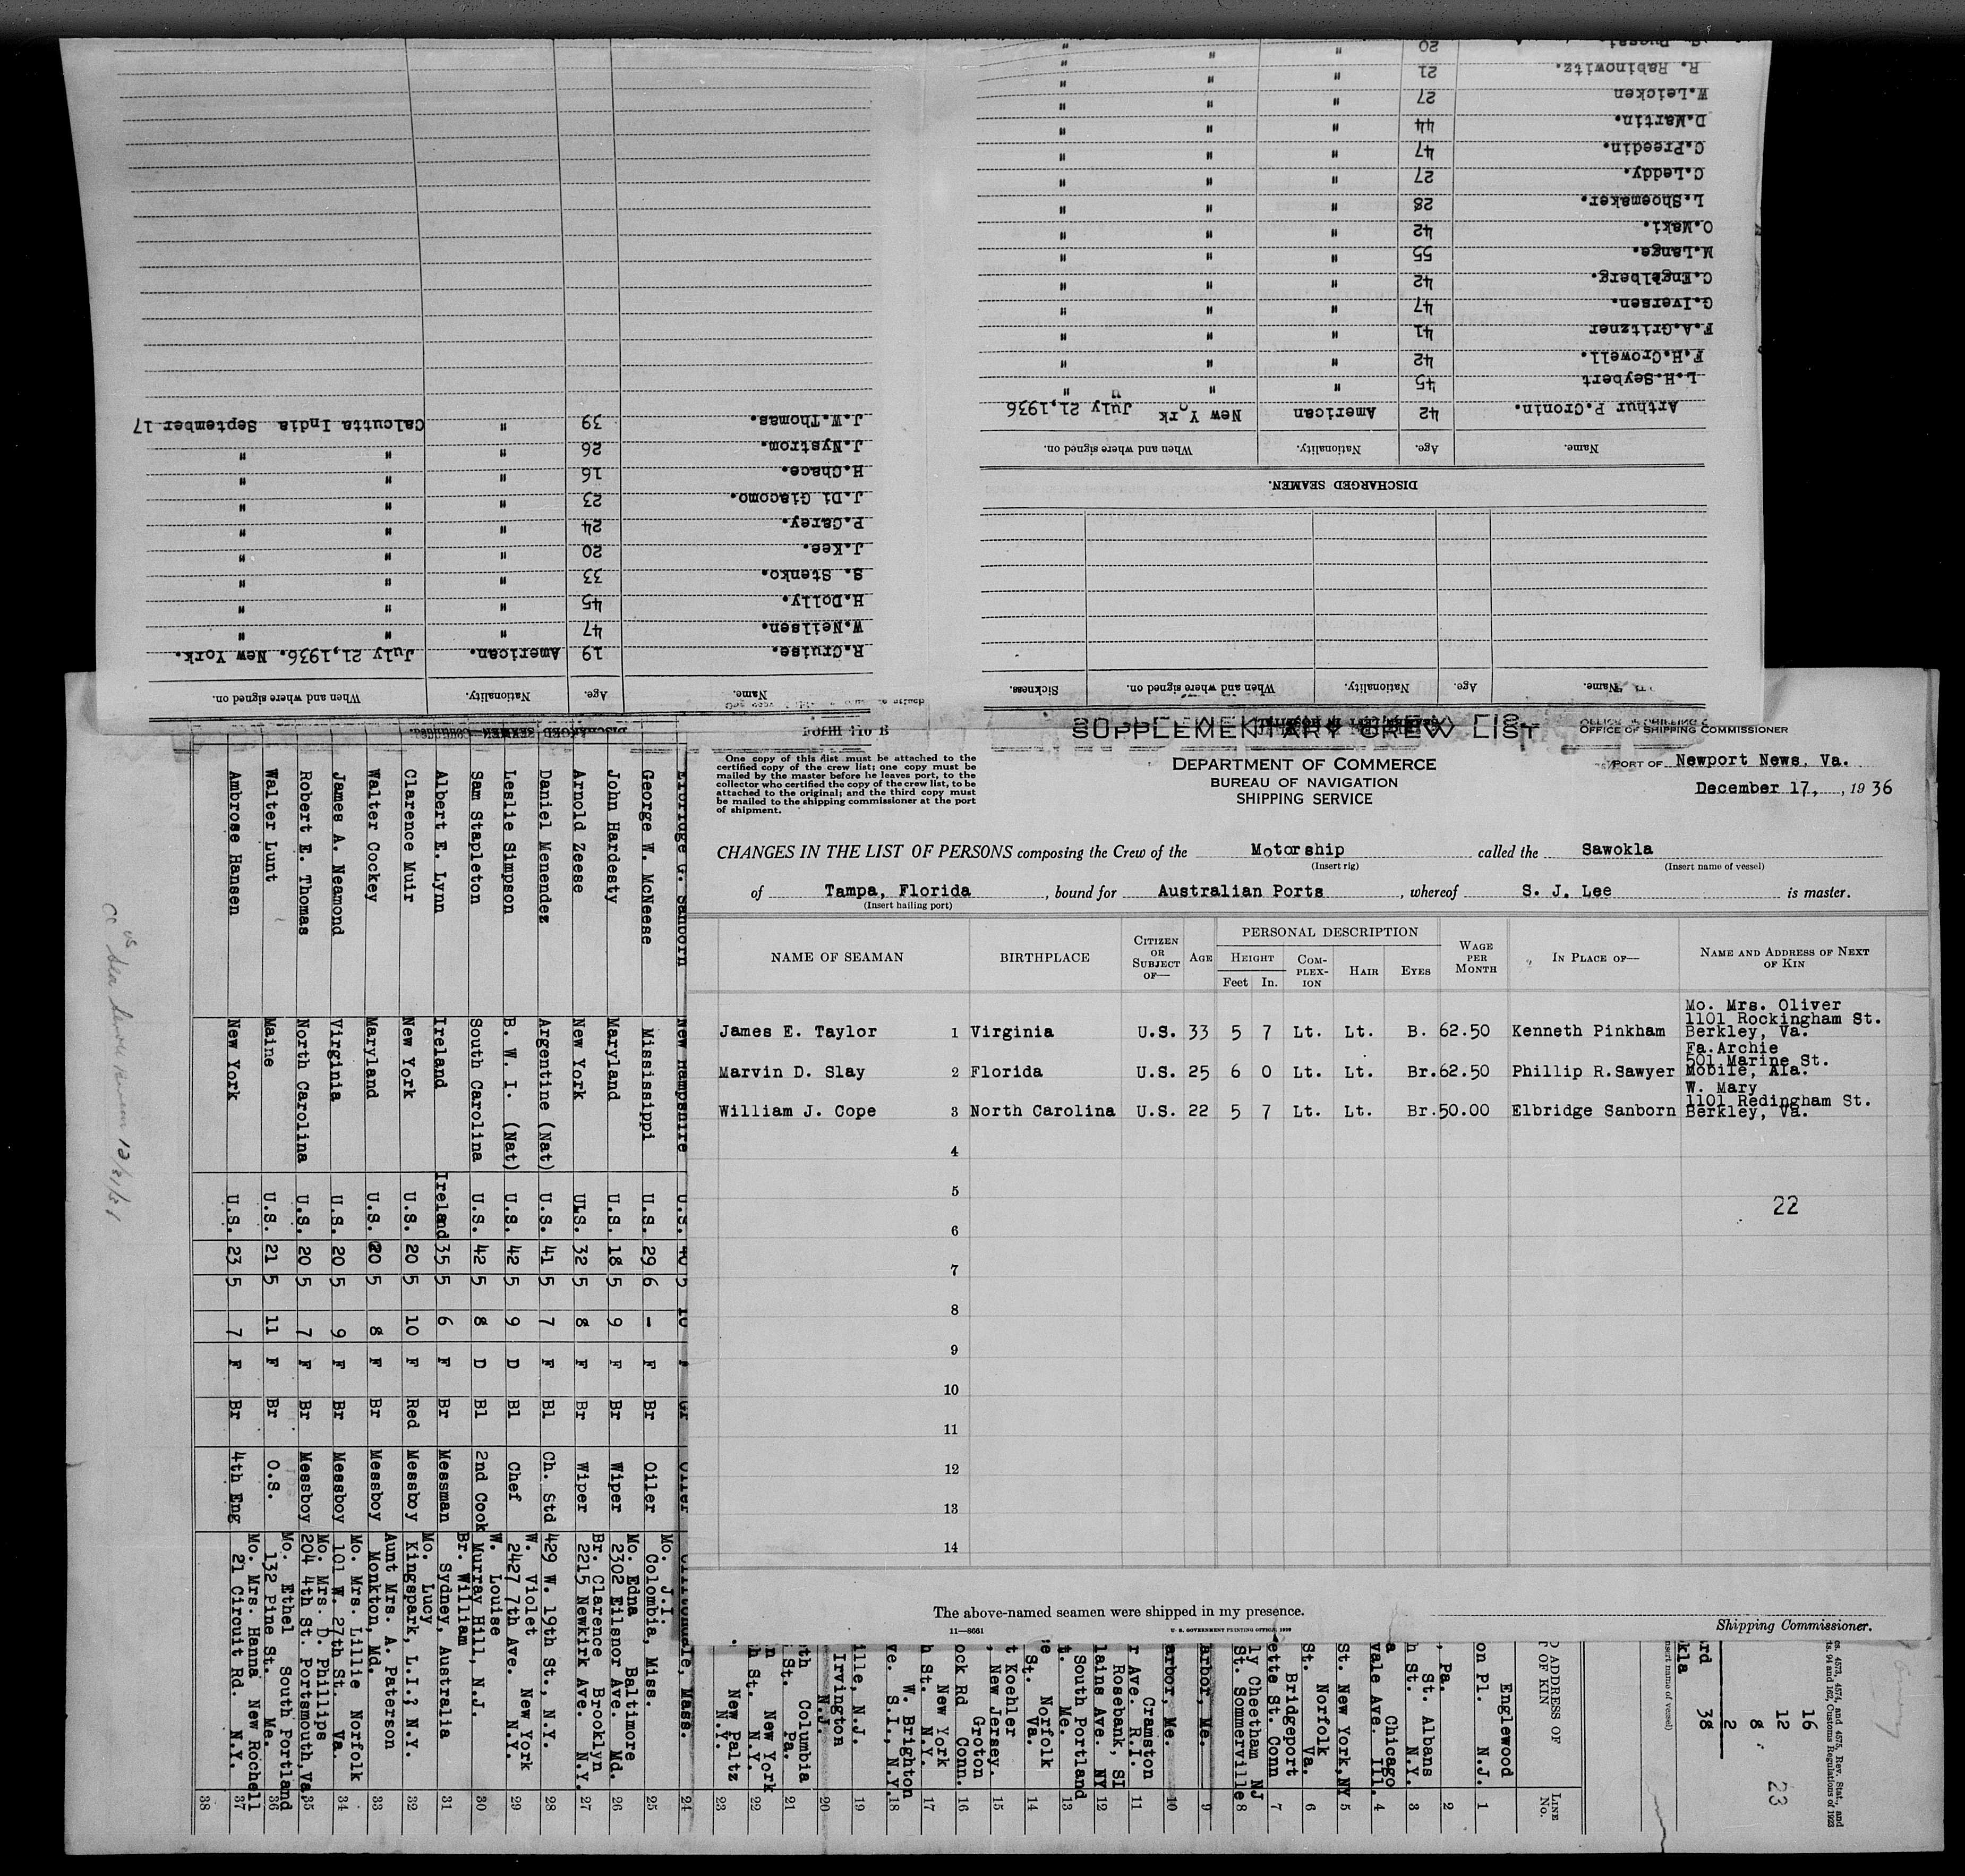 SUPPLEMENTARY CREW LIST
OFFICE OF SHIPPING COMMISSIONER
PORT OF Newport News, Va.
December 17, , 1936
One copy of this list must be attached to the
certified copy of the crew list; one copy must be
mailed by the master before he leaves port, to the
collector who certified the copy of the crew list, to be
attached to the original; and the third copy must
be mailed to the shipping commissioner at the port
of shipment.
DEPARTMENT OF COMMERCE
BUREAU OF NAVIGATION
SHIPPING SERVICE
CHANGES IN THE LIST OF PERSONS composing the Crew of the Motorship called the Sawokla
(Insert rig) (Insert name of vessel)
of Tampa, Florida , bound for Australian Ports , whereof S. J. Lee is master.
(Insert hailing port)
NAME OF SEAMAN BIRTHPLACE CITIZEN OR SUBJECT OF— AGE PERSONAL DESCRIPTION HEIGHT Feet In. COMPLEXION HAIR EYES WAGE PER MONTH IN PLACE OF— NAME AND ADDRESS OF NEXT OF KIN
Mo. Mrs. Oliver
1101 Rockingham St.
James E. Taylor 1 Virginia U.S. 33 5 7 Lt. Lt. B. 62.50 Kenneth Pinkham Berkley, Va.
Fa.Archie
501 Marine St.
Marvin D. Slay 2 Florida U.S. 25 6 0 Lt. Lt. Br. 62.50 Phillip R.Sawyer Mobile, Ala.
W. Mary
1101 Redingham St.
William J. Cope 3 North Carolina U.S. 22 5 7 Lt. Lt. Br. 50.00 Elbridge Sanborn Berkley, Va.
4
5
22
6
7
8
9
10
11
12
13
14
The above-named seamen were shipped in my presence.
11—8661
U. S. GOVERNMENT PRINTING OFFICE
Shipping Commissioner.
DISCHARGED SEAMEN.
Name. Age. Nationality. When and where signed on. Sickness.
DISCHARGED SEAMEN.
Name. Age. Nationality. When and where signed on.
Arthur P.Cronin. 42 American New York July 21,1936
L.H.Seybert 45 " " "
F.H.Crowell. 42 " " "
F.A.Gritzner 41 " " "
G.Iversen. 47 " " "
C.Engelberg. 42 " " "
M.Lange. 55 " " "
O.Maki. 42 " " "
L.Shoemaker. 28 " " "
C.Leddy. 27 " " "
C.Preedin. 47 " " "
D.Martin. 44 " " "
W.Leicken 27 " " "
R. Rabinowitz. 21 " " "
20 " " "
Name. Age. Nationality. When and where signed on.
R.Cruise. 19 American. July 21,1936. New York.
W.Neilsen. 47 " " "
H.Dolly. 45 " " "
S. Stenko. 33 " " "
J.Kee. 20 " " "
P.Carey. 24 " " "
J.Di Giacomo. 23 " " "
H.Chace. 16 " " "
J.Nystrom. 26 " " "
J.W.Thomas. 39 " Calcutta India September 17
Elbridge G. Sanborn New Hampshire U.S. 24
George W. McNeese Mississippi U.S. 29 6 - F Br Oiler Mo. J.I. Colombia, Miss. 25
John Hardesty Maryland U.S. 18 5 9 F Br Wiper Mo. Edna Baltimore 2302 Eilsnor Ave. Md. 26
Arnold Zeese New York ULS. 32 5 8 F Br Wiper Br. Clarence Brooklyn 2215 Newkirk Ave. N.Y. 27
Daniel Menendez Argentine (Nat) U.S. 41 5 7 F Bl Ch. Std 429 W. 19th St., N.Y. 28
Leslie Simpson B. W. I. (Nat) U.S. 42 5 9 D Bl Chef W. Violet New York 2427 7th Ave. N.Y. 29
Sam Stapleton South Carolina U.S. 42 5 8 D Bl 2nd Cook W. Louise Murray Hill, N.J. 30
Albert E. Lynn Ireland Ireland 35 5 6 F Br Messman Br. William Sydney, Australia 31
Clarence Muir New York U.S. 20 5 10 F Red Messboy Mo. Lucy Kingspark, L.I., N.Y. 32
Walter Cockey Maryland U.S. 20 5 8 F Br Messboy Aunt Mrs. A. Paterson Monkton, Md. 33
James A. Neamond Virginia U.S. 20 5 9 F Br Messboy Mo. Mrs. Lillie Norfolk 101 W. 27th St. Va. 34
Robert E. Thomas North Carolina U.S. 20 5 7 F Br Messboy Mo. Mrs. D. Phillips 204 4th St. Portsmouth,Va. 35
Walter Lunt Maine U.S. 21 5 11 F Br O.S. Mo. Ethel South Portland 132 Pine St. Me. 36
Ambrose Hansen New York U.S. 23 5 7 F Br 4th Eng Mo. Mrs. Hanna New Rochell 21 Circuit Rd. N.Y. 37
38
LINE No.
ADDRESS OF
OF KIN
Englewood
on Pl. N.J. 1
Pa. 2
St. Albans
h St. N.Y. 3
Chicago
vale Ave. Ill. 4
St. New York,NY 5
Norfolk
St. Va. 6
Bridgeport
ette St. Conn 7
ly Cheetham NJ
St. Sommerville 8
arbor, Me. 9
arbor, Me. 10
Cramston
r Ave. R.I. 11
Rosebank, SI
lains Ave. NY 12
South Portland
t. Me. 13
Norfolk
St. Va. 14
t Koehler
, New Jersey. 15
Groton
ock Rd Conn. 16
New York
h St. N.Y. 17
W. Brighton
ve. S.I., N.Y. 18
ille, N.J. 19
Irvington
N.J. 20
th Columbia
St. Pa. 21
New York
h St. N.Y. 22
New Paltz
N.Y. 23
16
12
8
2
38
23